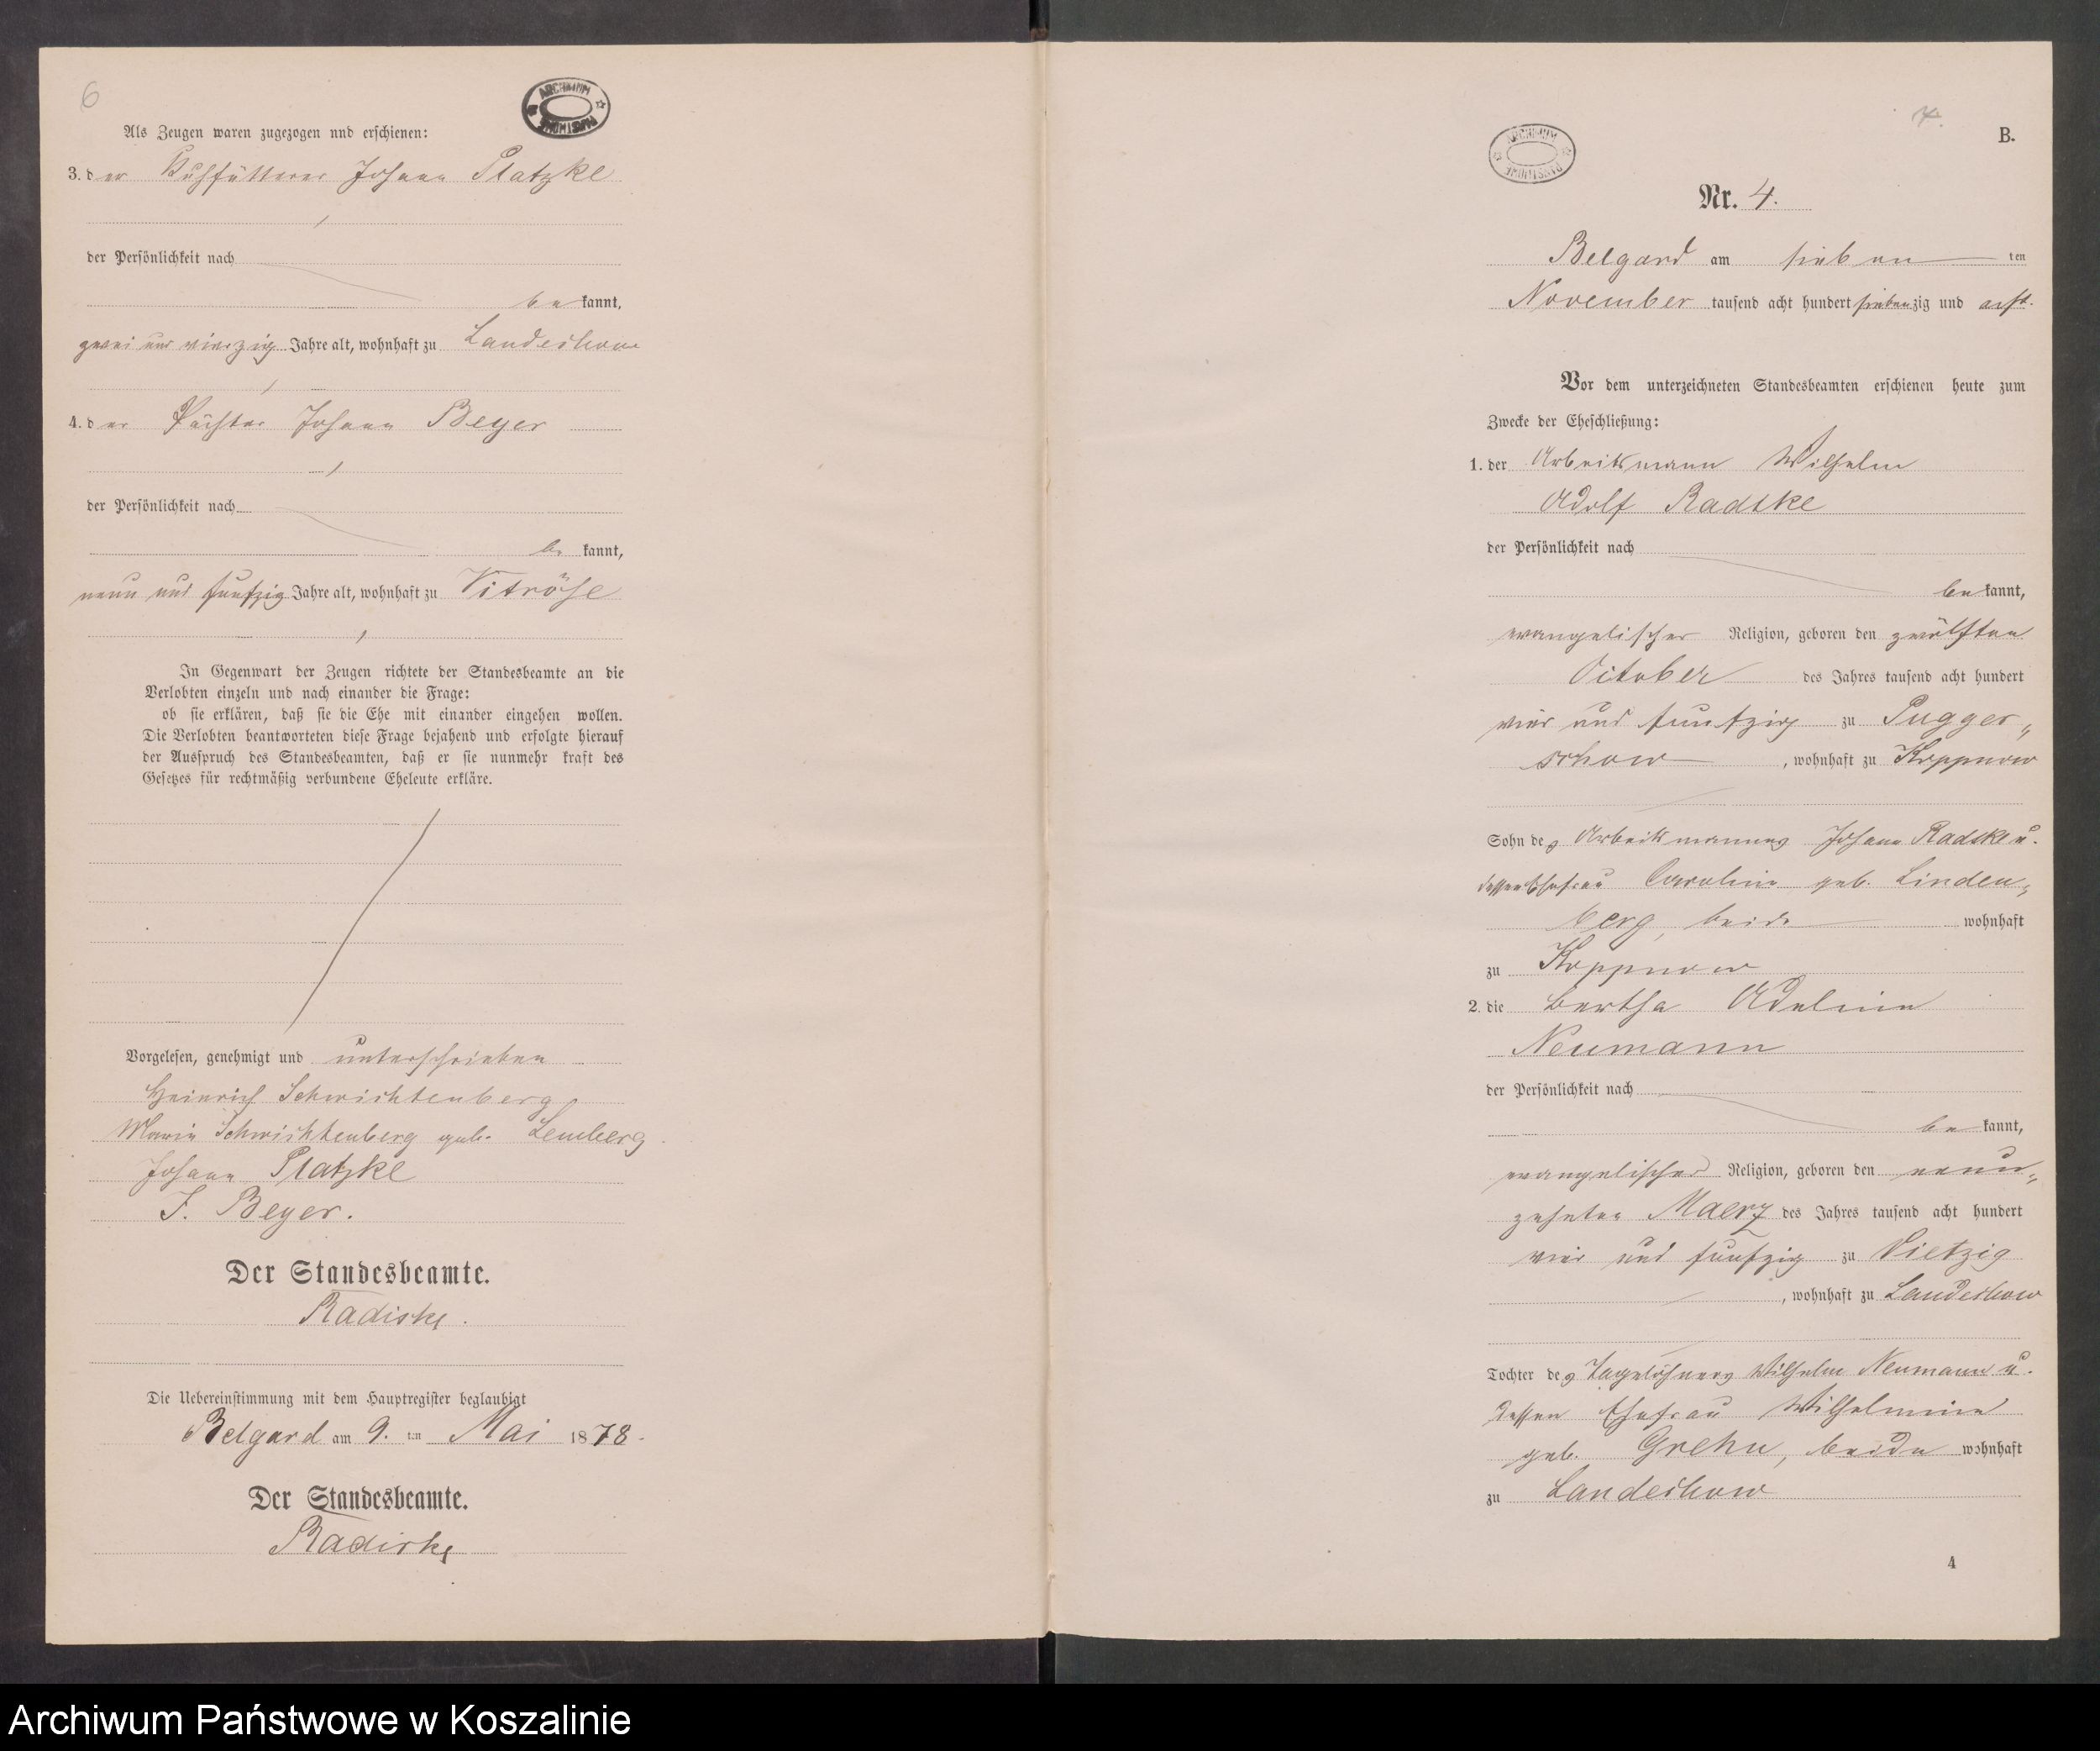 6
ARCHIWUM PAŃSTWOWE
Als Zeugen waren zugezogen und erschienen:
3. der Kuhfütterer Johann Platzke
der Persönlichkeit nach
bekannt,
zwei und vierzig Jahre alt, wohnhaft zu Landechow
4. der Pächter Johann Beyer
der Persönlichkeit nach
be kannt,
neun und fünfzig Jahre alt, wohnhaft zu Vitröse
In Gegenwart der Zeugen richtete der Standesbeamte an die
Verlobten einzeln und nach einander die Frage:
ob sie erklären, daß sie die Ehe mit einander eingehen wollen.
Die Verlobten beantworteten diese Frage bejahend und erfolgte hierauf
der Ausspruch des Standesbeamten, daß er sie nunmehr kraft des
Gesetzes für rechtmäßig verbundene Eheleute erkläre.
Vorgelesen, genehmigt und unterschrieben
Heinrich Schwichtenberg
Marie Schwichtenberg geb. Lemberg
Johann Platzke
J. Beyer.
Der Standesbeamte.
Radiske.
Die Uebereinstimmung mit dem Hauptregister beglaubigt
Belgard am 9. ten Mai 1878.
Der Standesbeamte.
Radiske
7.
ARCHIWUM PAŃSTWOWE
B.
Nr. 4.
Belgard am sieben ten
November tausend acht hundert siebenzig und acht.
Vor dem unterzeichneten Standesbeamten erschienen heute zum
Zwecke der Eheschließung:
1. der Arbeitsmann Wilhelm
Adolf Radtke
der Persönlichkeit nach
bekannt,
evangelischer Religion, geboren den zwölften
October des Jahres tausend acht hundert
vier und funfzig zu Pugger„
schow, wohnhaft zu Koppnow
Sohn des Arbeitsmannes Johann Radtke u.
dessen Ehefrau Caroline geb. Linden„
berg, beide wohnhaft
zu Koppnow
2. die Bertha Adeline
Neumann
der Persönlichkeit nach
bekannt,
evangelischer Religion, geboren den neun„
zehnten Maerz des Jahres tausend acht hundert
vier und funfzig zu Vietzig
, wohnhaft zu Landechow
Tochter des Tagelöhners Wilhelm Neumann u.
dessen Ehefrau Wilhelmine
geb. Grehn, beide wohnhaft
zu Landechow
4
Archiwum Państwowe w Koszalinie